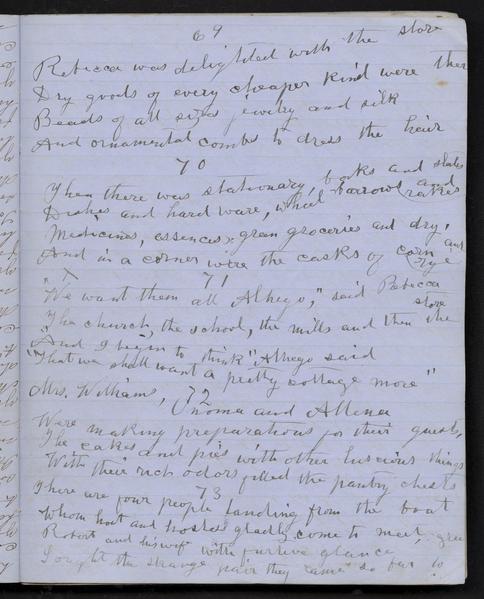 69
Rebecca was delighted with the store
Dry goods of every cheaper kind were there
Beads of all sizes jewelry and silk
And ornamental combs to dress the hair
70
Then there was stationary, books and slates
and hard ware, wheel barrows and rakes
Medicines, essences, green groceries and dry,
And in a corner were the casks of corn and rye
71
"We want them all Alhego," said Rebecca
The church, the school, the mills and then the store
"And I begin to think" Alhego said
"That we shall want a pretty cottage more"
72
Mrs. Williams, Onoma and Allena
Were making preparations for their guests,
The cakes and pies with other luscious things
With their rich odors filled the pantry chests
73
There are four people landing from the boat
Whom host and hostess gladly come to meet
Robert and his wife with furtive glance
the strange pair they came so far to